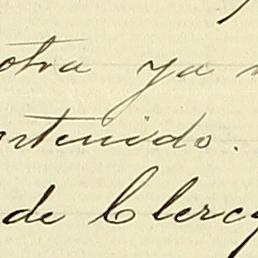 otra ya
ntenido.
de Clercq